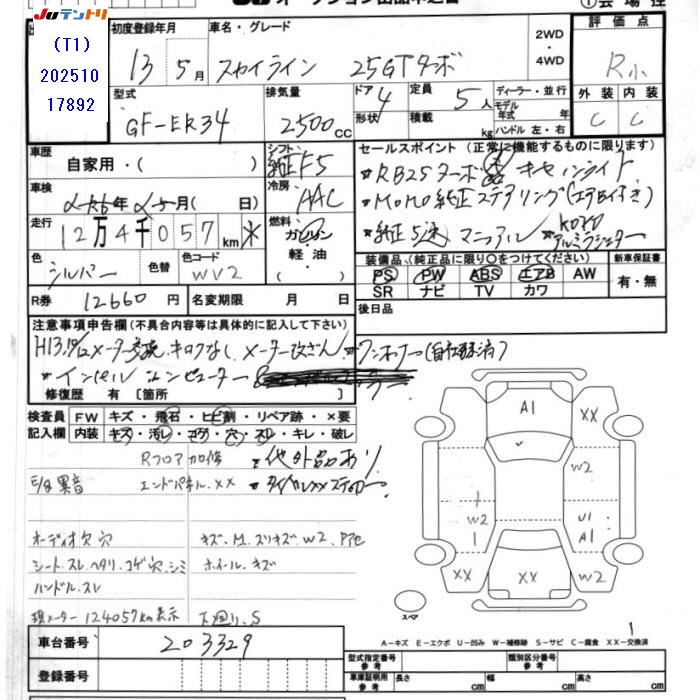 JUテントリ
(T1)
202510
17892
初度登録年月
13年5月
車名・グレード
スカイライン 25GTターボ
2WD
・
4WD
評価点
R小
外装 内装
C C
型式
GF-ER34
排気量
2500cc
ドア 4
形状
定員 5人
積載 kg
ディーラー・並行
モデル
年式 年
ハンドル 左・右
車歴
自家用・( )
シフト
純正F5
車検
年 月( 日)
冷房
AAC
走行
12万4千057km
燃料
ガソリン
軽油
( )
色
シルバー
色替
色コード
WV2
R券
12660円
名変期限 月 日
セールスポイント (正常に機能するものに限ります)
*RB25ターボ キセノンライト
*MOMO純正ステアリング(エアB付き)
*純正5速マニュアル
装備品 (純正品に限り○をつけてください)
PS PW ABS エアB AW
SR ナビ TV カワ
新車保証書
有・無
後日品
注意事項申告欄(不具合内容等は具体的に記入して下さい)
メーター交換 キロクなし メーター改ざん *ワンオーナー
*インパル コンピューター
修復歴 有 [箇所
検査員
記入欄
FW キズ・飛石・ヒビ割・リペア跡・×要
内装 キズ・汚レ・コゲ・穴・スレ・キレ・破レ
Rフロア加修 *社外品あり
異音 エンドパネル.XX
オーディオ欠穴 キズ、M、スリキズ、W2
シート.スレ.ヘタリ.コゲ穴.シミ ホイール.キズ
ハンドル.スレ
現メーター124057km表示 下廻り.S
車台番号 203329
登録番号
A1
XX
W2
1
W2
1
U1
A1
XX
XX
W2
スペア
1
A-キズ E-エクボ U-凹み W-補修跡 S-サビ C-腐食 XX-交換済
型式指定番号
参考
類別区分番号
参考
車庫証明用
参考
長さ cm
幅 cm
高さ cm